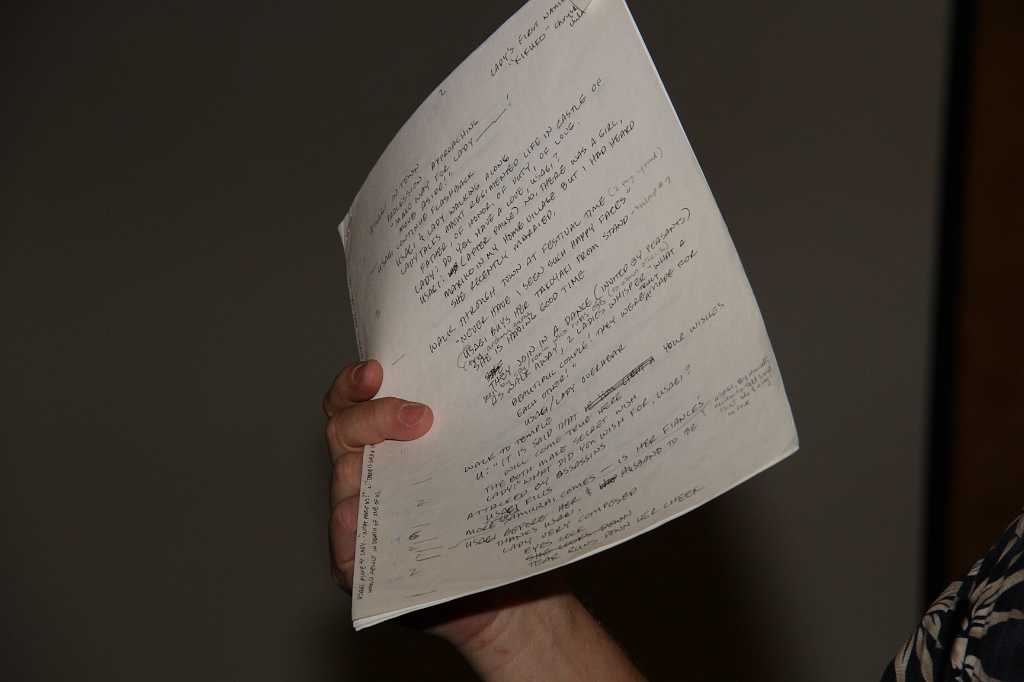 2
LADY'S FIRST NAME
"KIKUKO"
IN TOWN
PROCESSION APPROACHING
"MAKE WAY FOR LADY
MOVE ASIDE!"
CONTINUE FLASHBACK
USAGI & LADY WALKING ALONG
LADY TALKS ABOUT REGIMENTED LIFE IN CASTLE OF
FATHER, OF HONOR, OF DUTY, OF LOVE.
LADY: DO YOU HAVE A LOVE, USAGI?
USAGI: (AFTER PAUSE) NO, THERE WAS A GIRL,
MARIKO IN MY HOME VILLAGE BUT I HAD HEARD
SHE RECENTLY MARRIED.
WALK THROUGH TOWN AT FESTIVAL TIME
"NEVER HAVE I SEEN SUCH HAPPY FACES"
USAGI BUYS HER TAKOYAKI FROM STAND
SHE IS HAVING GOOD TIME
THEY JOIN IN A DANCE (INVITED BY PEASANTS)
AS WALK AWAY, 2 LADIES WHISPER "WHAT A
BEAUTIFUL COUPLE! THEY WERE MADE FOR
EACH OTHER!"
USAGI/LADY OVERHEAR
WALK TO TEMPLE
U: "IT IS SAID THAT YOUR WISHES
WILL COME TRUE HERE
THE BOTH MAKE SECRET WISH
LADY: "WHAT DID YOU WISH FOR, USAGI?
ATTACKED BY ASSASSINS
USAGI KILLS
MORE SAMURAI COMES — IS HER FIANCE'S
USAGI BEFORE HER & HUSBAND TO BE
THANKS USAGI.
LADY VERY COMPOSED
EYES LOCK
SHE LOOKS DOWN
TEAR RUNS DOWN HER CHEEK